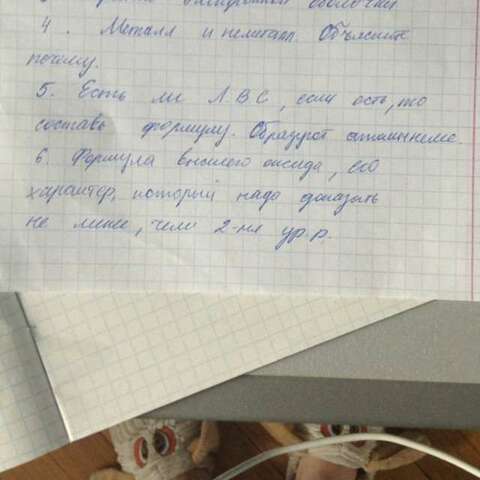 электронной оболочки
4. Металл и неметалл. Объясните
почему.
5. Есть ли Л.В.С, если есть, то
составь формулу. Образует ли
6. Формула высшего оксида, его
характер, который надо доказать
не менее, чем 2-мя ур.р.